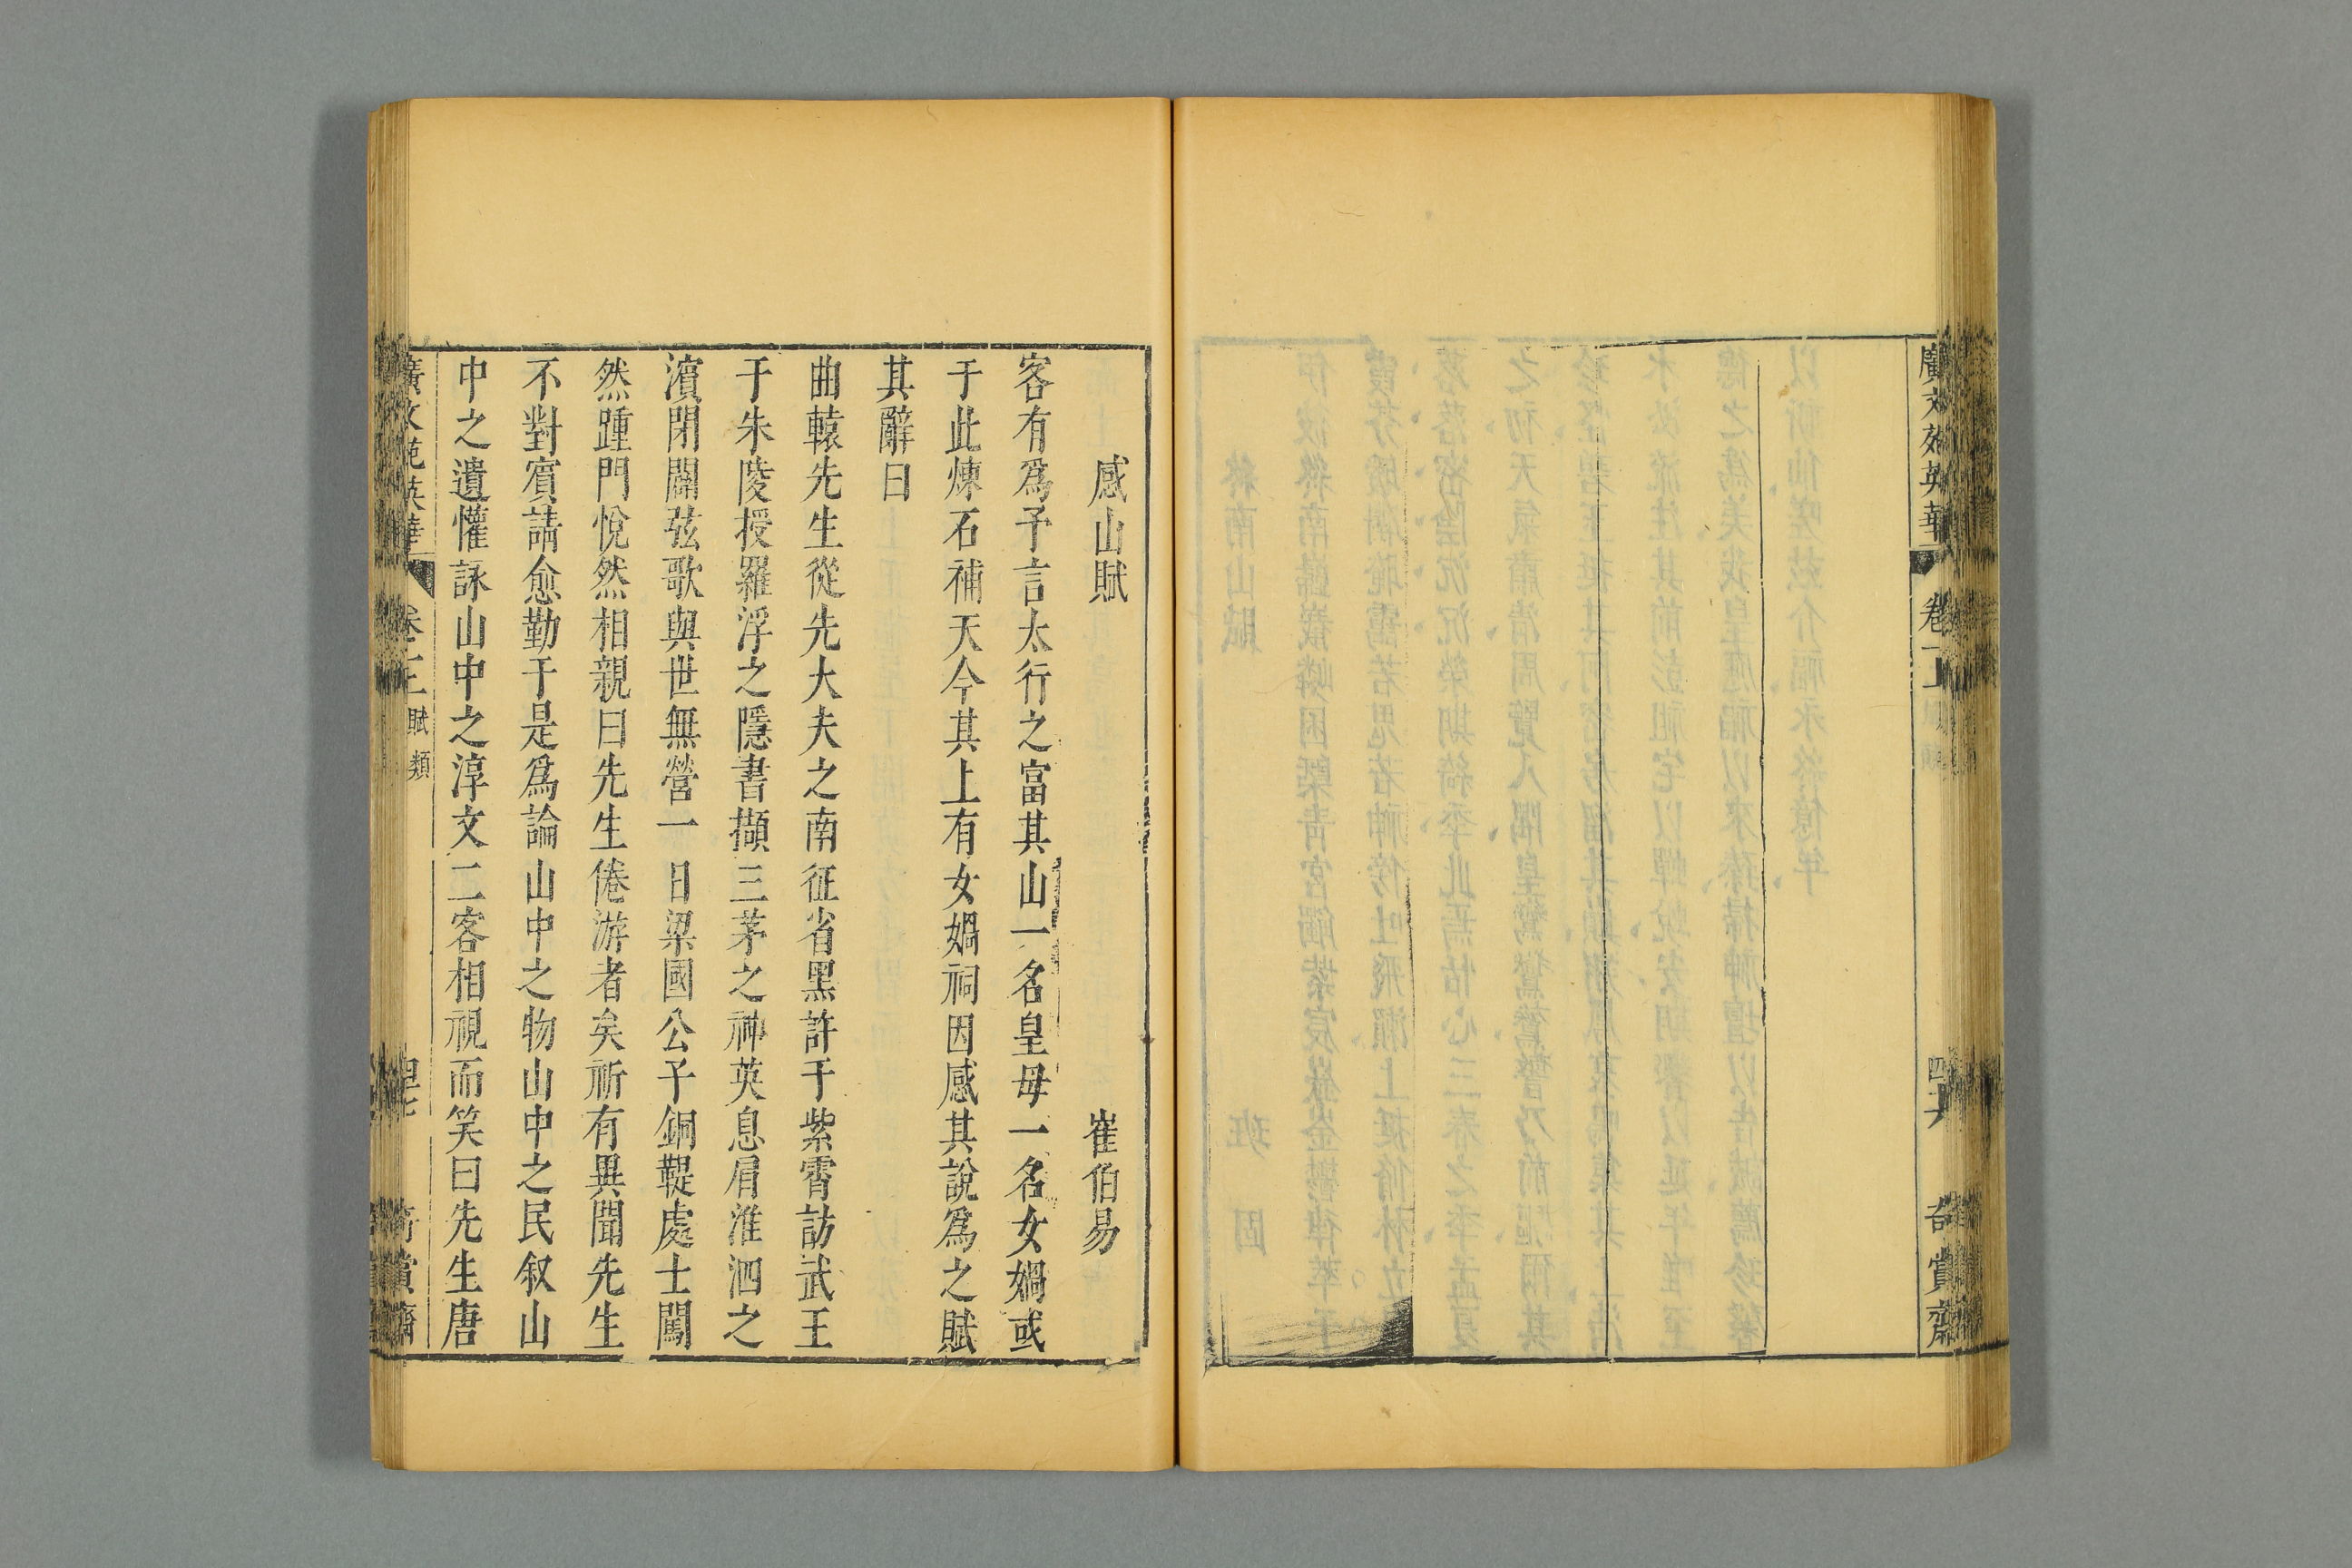 廣文苑英華
卷一
四六
奇賞齋
感山賦
崔伯易
客有爲予言太行之富其山一名皇母一名女媧或
于此煉石補天今其上有女媧祠因感其說爲之賦
其辭曰
曲轅先生從先大夫之南征省黑許于紫霄訪武王
于朱陵授羅浮之隱書擷三茅之神英息肩淮泗之
濵閉關弦歌與世無營一日梁國公子銅鞮處士闖
然踵門悅然相親曰先生倦游者矣祈有異聞先生
不對賓請愈勤于是爲論山中之物山中之民叙山
中之遺懽詠山中之淳文二客相視而笑曰先生唐
廣文苑英華
賦類
四七
奇賞齋